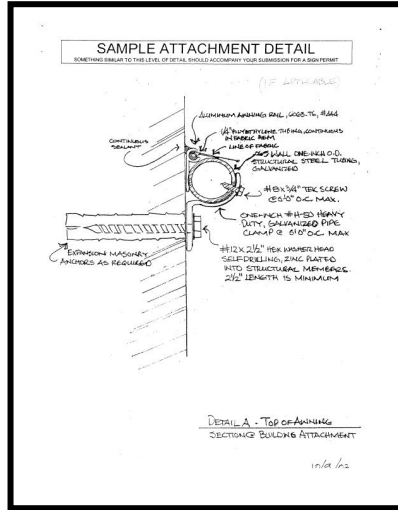 SAMPLE ATTACHMENT DETAIL
SOMETHING SIMILAR TO THIS LEVEL OF DETAIL SHOULD ACCOMPANY YOUR SUBMISSION FOR A SIGN PERMIT
(IF APPLICABLE)
ALUMINUM AWNING RAIL, 6063-T6, #444
CONTINUOUS
SEALANT
1/4" POLYETHYLENE TUBING, CONTINUOUS
IN FABRIC HEM
LINE OF FABRIC
WALL ONE-INCH O.D.
STRUCTURAL STEEL TUBING,
GALVANIZED
#8 x 3/4" TEK SCREW
@ 5'0" O.C. MAX.
ONE-INCH #H-50 HEAVY
DUTY, GALVANIZED PIPE
CLAMP @ 5'0" O.C. MAX
EXPANSION MASONRY
ANCHORS AS REQUIRED
#12 x 2 1/2" HEX WASHER HEAD
SELF-DRILLING, ZINC PLATED
INTO STRUCTURAL MEMBERS.
2 1/2" LENGTH IS MINIMUM
DETAIL A - TOP OF AWNING
SECTION @ BUILDING ATTACHMENT